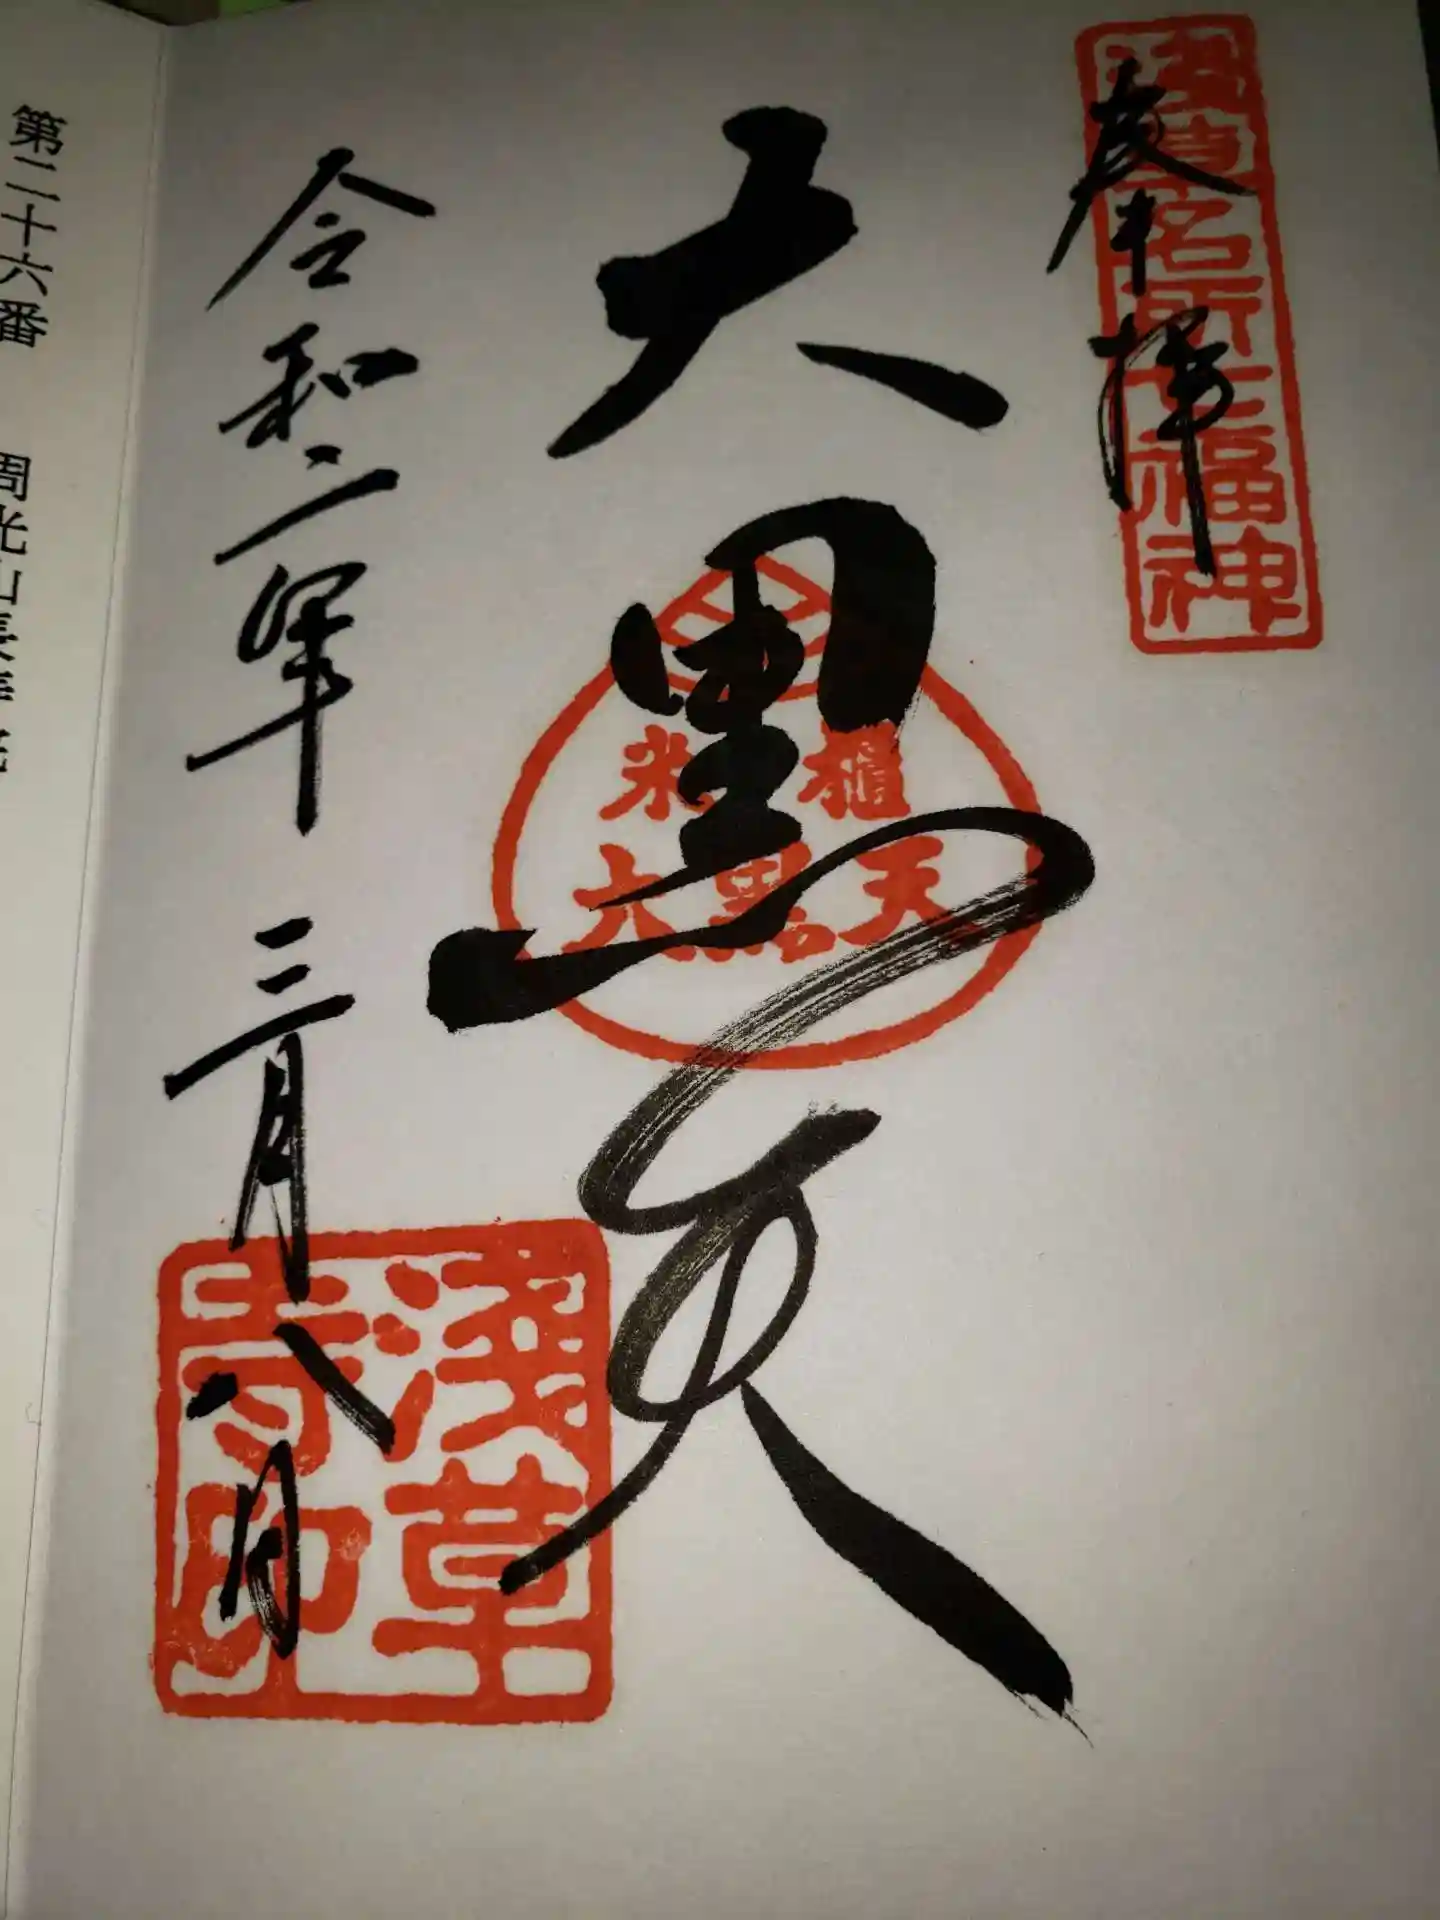 奉拝
浅草名所七福神
大黒天
米櫃
大黒天
令和二年 三月八日
浅草寺印
第二十六番 周光山長寿院